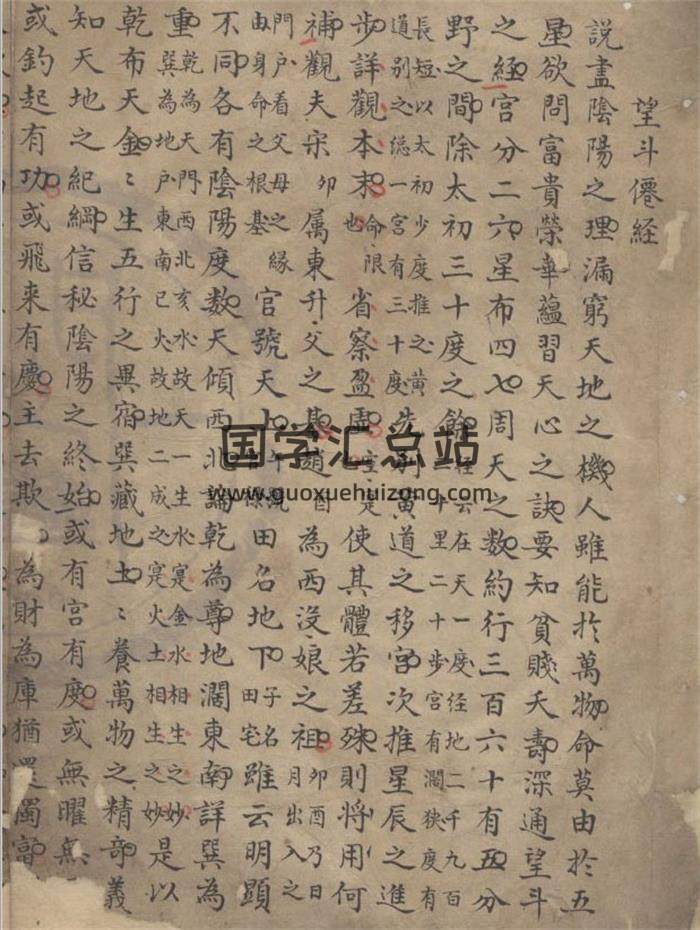 望斗僊経
說盡陰陽之理漏窮天地之機人雖能扵萬物命莫由扵五
星欲問富貴榮華蘊習天心之訣要知貧賤夭壽深通望斗
之経宮分二六星布四七周天之数約行三百六十有五分
野之間除太初三十度之餘云在天一度经地二千九百十里二十步宮有濶狹度有
長短以太初少度推之黄道别之緫一宮有三十度先列黄道之移宮次推星辰之進
步詳觀本末命限也省察盈使其體若差殊則将用何
補觀夫宋卯属東升父之基趙酉為西没娘之祖卯酉乃日月出入之
門戸看父母之緣由身命之根基官號天上田名地下子名田宅雖云明顯
不同各有陰陽度数天傾西北論乾為尊地濶東南詳巽為
重乾為天門西北亥水故天一生水寔金水相生之妙巽為地戸東南巳火故地二成之寔火土相生之妙是以
乾布天金〻生五行之異宿巽藏地土〻養萬物之精竒義
知天地之紀綱信秘陰陽之終始或有宮有度或無曜無
或釣起有功或飛来有慶主去欺為財為庫猶還濁富
国学汇总站
www.guoxuehuizong.com